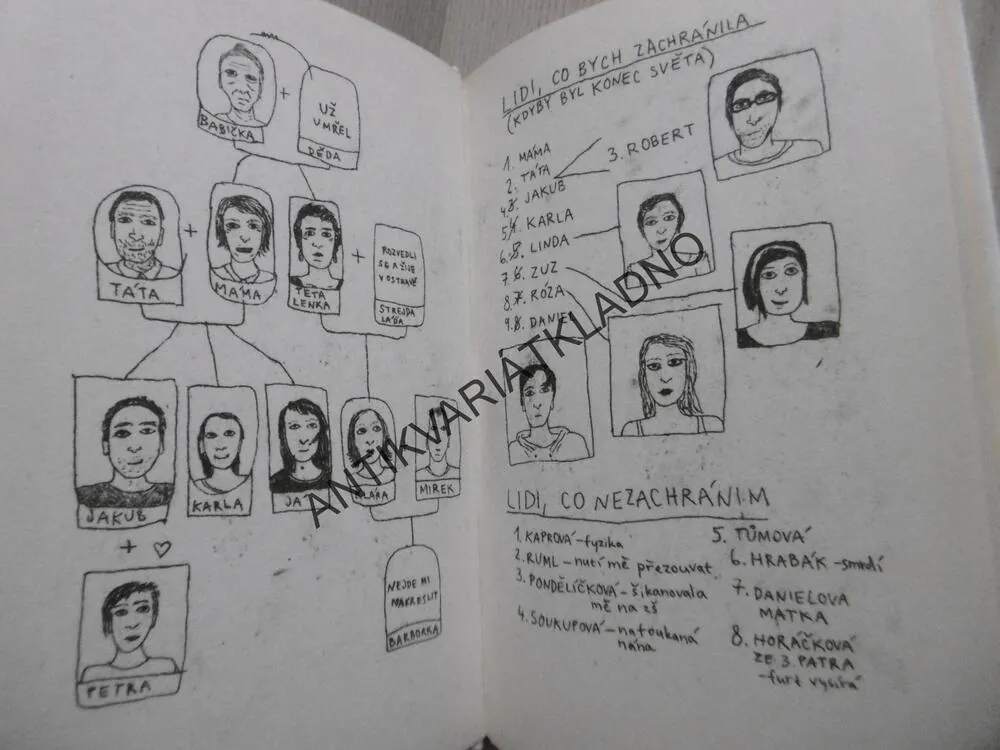 BABIČKA
+
UŽ
UMŘEL
DĚDA
TÁTA
+
MÁMA
TETA
LENKA
+
ROZVEDLI
SE A ŽIJE
V OSTRAVĚ
STREJDA
LÁĎA
JAKUB
KARLA
JÁ
KLÁRA
MIREK
+ ♡
PETRA
NEJDE MI
NAKRESLIT
BARBORKA
LIDI, CO BYCH ZACHRÁNILA
(KDYBY BYL KONEC SVĚTA)
1. MÁMA
2. TÁTA
3. ROBERT
4. JAKUB
5. KARLA
6. LINDA
7. ZUZ
8. RÓZA
9. DANIEL
LIDI, CO NEZACHRÁNIM
1. KAPROVÁ - fyzika
2. RUML - nutí mě přezouvat
3. PONDĚLÍČKOVÁ - šikanovala
mě na zš
4. SOUKUPOVÁ - nafoukaná
nána
5. TŮMOVÁ
6. HRABÁK - smrdí
7. DANIELOVA
MATKA
8. HORÁČKOVÁ
ZE 3. PATRA
- furt vysírá
ANTIKVARIÁTKLADNO